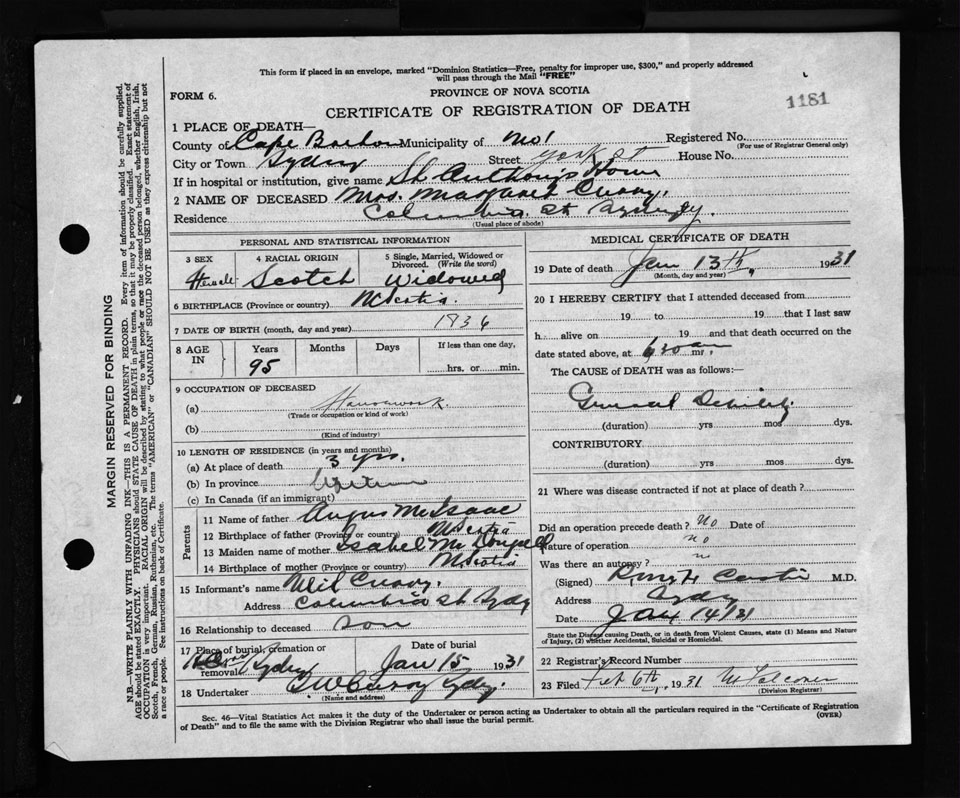 This form if placed in an envelope, marked "Dominion Statistics—Free, penalty for improper use, $300," and properly addressed
will pass through the Mail "FREE"
FORM 6.
PROVINCE OF NOVA SCOTIA
1181
CERTIFICATE OF REGISTRATION OF DEATH
1 PLACE OF DEATH—
County of Cape Breton Municipality of No1 Registered No.
(For use of Registrar General only)
City or Town Sydney Street York St House No.
If in hospital or institution, give name St. Anthony's Home
2 NAME OF DECEASED Mrs. Margaret
Residence Columbia St Sydney.
(Usual place of abode)
PERSONAL AND STATISTICAL INFORMATION
3 SEX 4 RACIAL ORIGIN 5 Single, Married, Widowed or Divorced. (Write the word)
Female Scotch Widowed
6 BIRTHPLACE (Province or country) N Scotia.
7 DATE OF BIRTH (month, day and year) 1836
8 AGE IN Years Months Days If less than one day,
95 hrs. or min.
9 OCCUPATION OF DECEASED
(a) Housework.
(Trade or occupation or kind of work)
(b)
(Kind of industry)
10 LENGTH OF RESIDENCE (in years and months)
(a) At place of death 3 yrs.
(b) In province Lifetime
(c) In Canada (if an immigrant)
Parents
11 Name of father Angus McIsaac
12 Birthplace of father (Province or country) N Scotia
13 Maiden name of mother Isabel McDougall
14 Birthplace of mother (Province or country) N Scotia
15 Informant's name Neil
Address Columbia St Sydney
16 Relationship to deceased son
17 Place of burial, cremation or removal Sydney Date of burial Jan 15 1931
18 Undertaker Sydney.
(Name and address)
MEDICAL CERTIFICATE OF DEATH
19 Date of death Jan 13th, 1931
(Month, day and year)
20 I HEREBY CERTIFY that I attended deceased from
19 to 19 that I last saw
h alive on 19 and that death occurred on
date stated above, at 6 30 am m.
The CAUSE of DEATH was as follows:
General Debility
(duration) yrs mos dys.
CONTRIBUTORY
(duration) yrs mos dys.
21 Where was disease contracted if not at place of death?
Did an operation precede death? No Date of
Nature of operation no
Was there an autopsy?
(Signed) M.D.
Address Sydney
Date Jany 14/31
State the Disease causing Death, or in death from Violent Causes, state (1) Means and Nature
of Injury, (2) whether Accidental, Suicidal or Homicidal.
22 Registrar's Record Number
23 Filed Feb 6th, 1931
(Division Registrar)
Sec. 46—Vital Statistics Act makes it the duty of the Undertaker or person acting as Undertaker to obtain all the particulars required in the "Certificate of Registration
of Death" and to file the same with the Division Registrar who shall issue the burial permit.
(OVER)
MARGIN RESERVED FOR BINDING
N.B.—WRITE PLAINLY WITH UNFADING INK—THIS IS A PERMANENT RECORD. Every item of information should be carefully supplied.
AGE should be stated EXACTLY. PHYSICIANS should STATE CAUSE OF DEATH in plain terms, so that it may be properly classified. Exact statement of
OCCUPATION is very important. RACIAL ORIGIN will be described by stating to what people or race the deceased person belonged, whether English, Irish,
Scotch, French, German, Russian, Ruthenian, etc. The terms "AMERICAN" or "CANADIAN" SHOULD NOT BE USED as they express citizenship but not
a race or people. See instructions on back of Certificate.